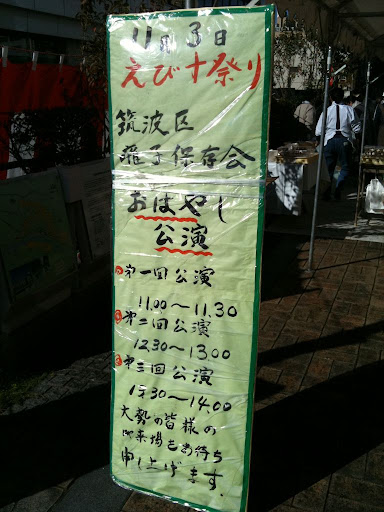 11月3日
えびす祭り
筑波区
囃子保存会
おはやし
公演
第一回公演
11.00〜11.30
第二回公演
12.30〜1300
第三回公演
13.30〜14.00
大勢の皆様の
御来場をお待ち
申し上げます.